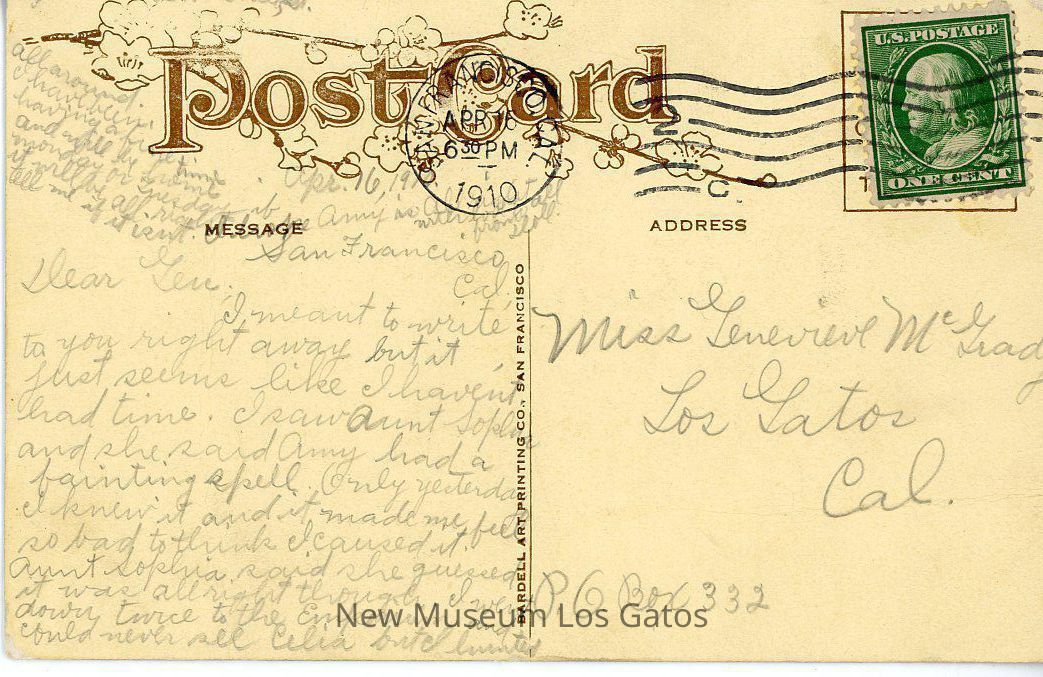 Post Card
SAN FRANCISCO, CAL.
APR 16
6 30 PM
1910
2
C.
U.S. POSTAGE
ONE CENT
MESSAGE
ADDRESS
Apr. 16, 19
San Francisco
Cal.
Dear Gen.
I meant to write
to you right away but it
just seems like I haven't
had time. I saw Aunt Sophia
and she said Amy had a
fainting spell. Only yesterday
I knew it and it made me feel
so bad to think I caused it.
Aunt Sophia said she guessed
it was allright though. I went
down twice to the and
could never see Celia but I
all around.
I have been
having a
and
monday or
it will be all right
tell me if it isn't.
Amy is
from
BARDELL ART PRINTING CO., SAN FRANCISCO
Miss Genevieve McGrad
Los Gatos
Cal.
P O Box 332
New Museum Los Gatos